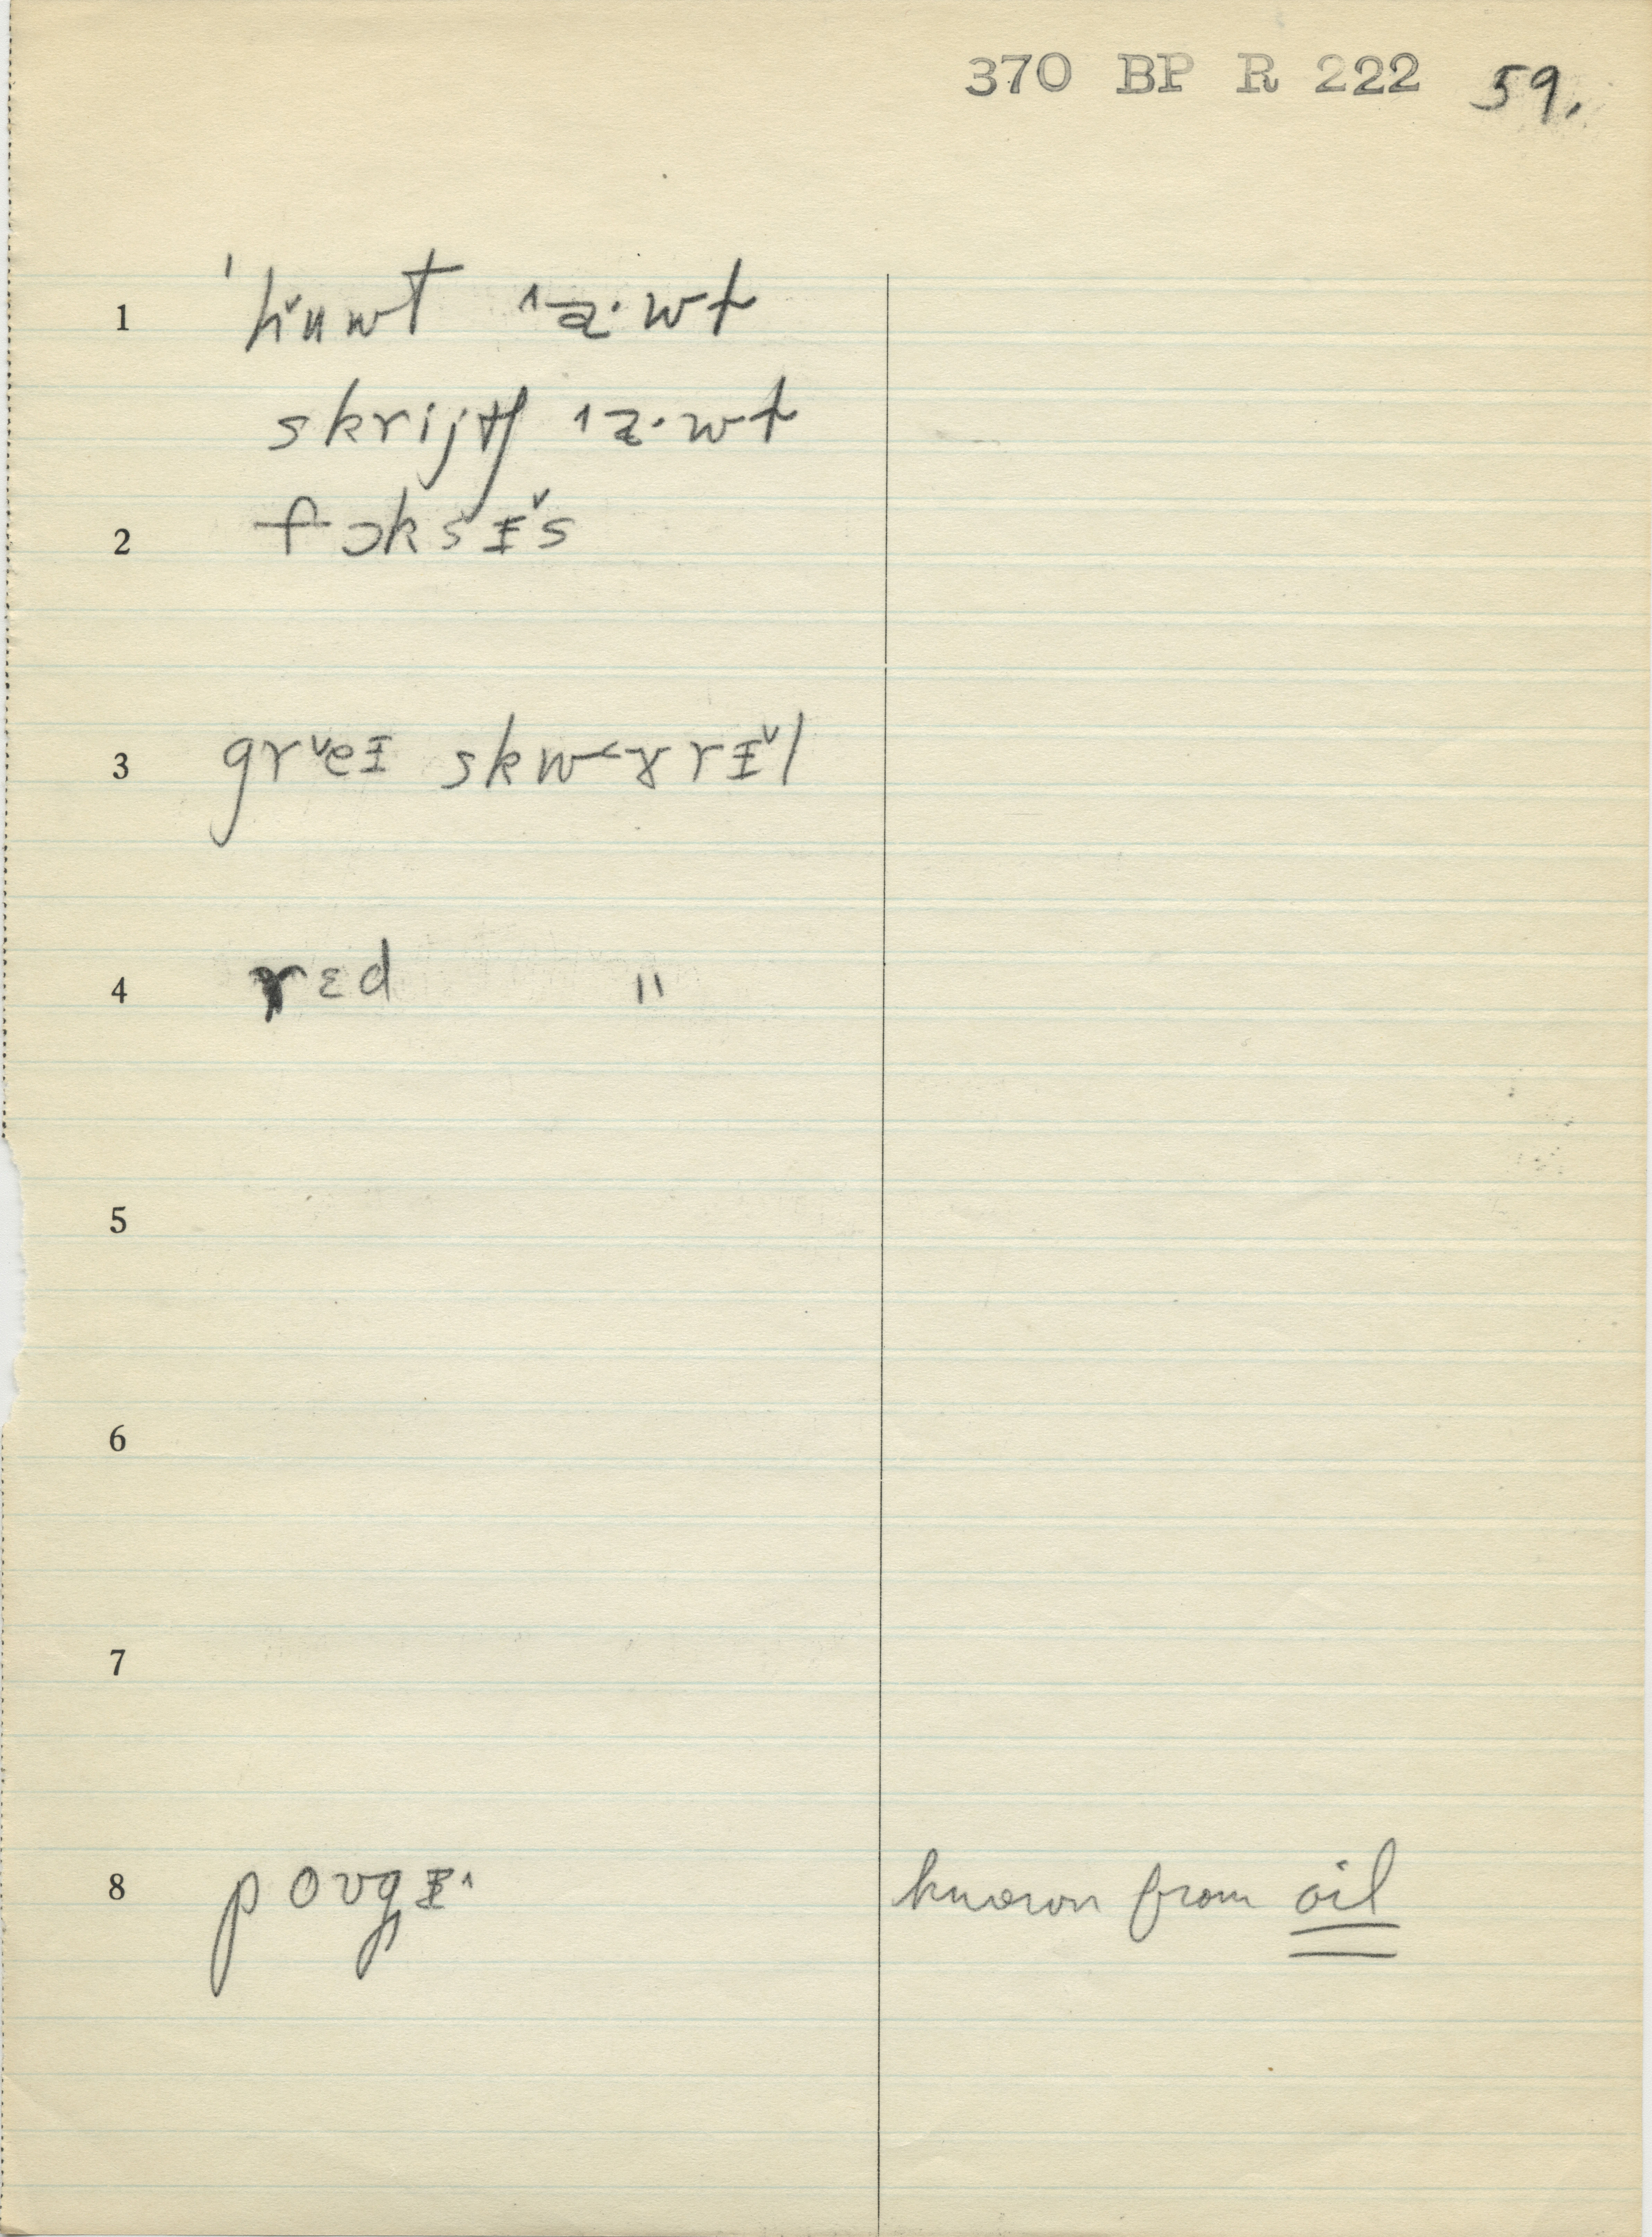 370 BP R 222 59.
1 ˈhᵛuwt ˄a·wt
skrijtʃ ˄a·wt
2 fɔksɪ̵ˇs
3 grˇeɪ̵ skwɤrɪ̵ˇl
4 rɛd "
5
6
7
8 poʊgɪ̵˄ known from oil